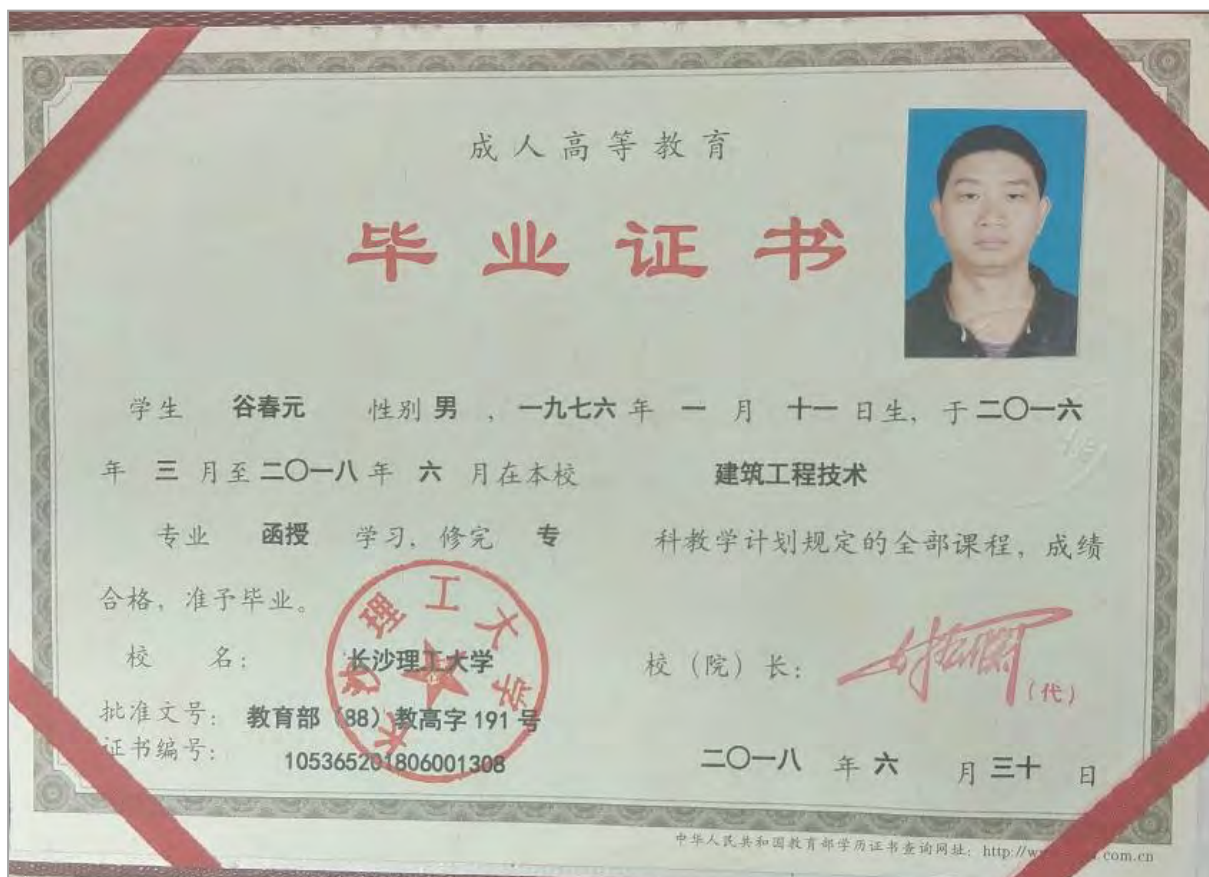 成人高等教育
毕业证书
学生 谷春元 性别 男 ，一九七六 年 一 月 十一 日生，于 二〇一六
年 三 月至 二〇一八 年 六 月在本校 建筑工程技术
专业 函授 学习，修完 专 科教学计划规定的全部课程，成绩
合格，准予毕业。
校 名： 长沙理工大学
校（院）长：
（代）
批准文号： 教育部（88）教高字 191 号
证书编号： 105365201806001308
二〇一八 年 六 月 三十 日
长沙理工大学
中华人民共和国教育部学历证书查询网址：http://w com.cn